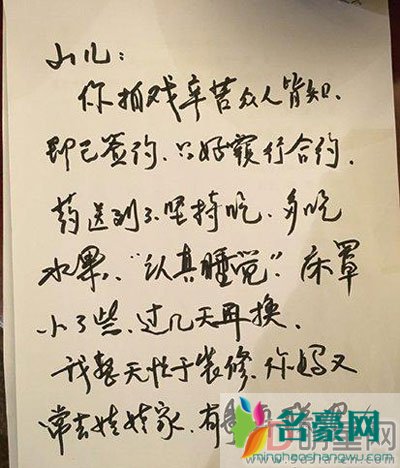 山儿：
你拍戏辛苦众人皆知.
即已签约.只好履行合约.
药送到了.坚持吃.多吃
水果."认真睡觉".床罩
小了些.过几天再换.
我整天忙于装修.你妈又
常去娃娃家.有
名豪网
minghaoshangmao.com